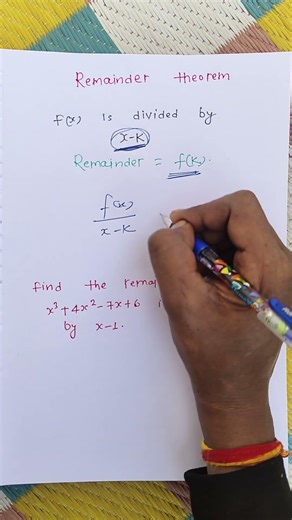 Remainder theorem
f(x) is divided by
x-K
Remainder = f(K).
f(x)
x-K
find the
x³+4x²-7x+6
by x-1.